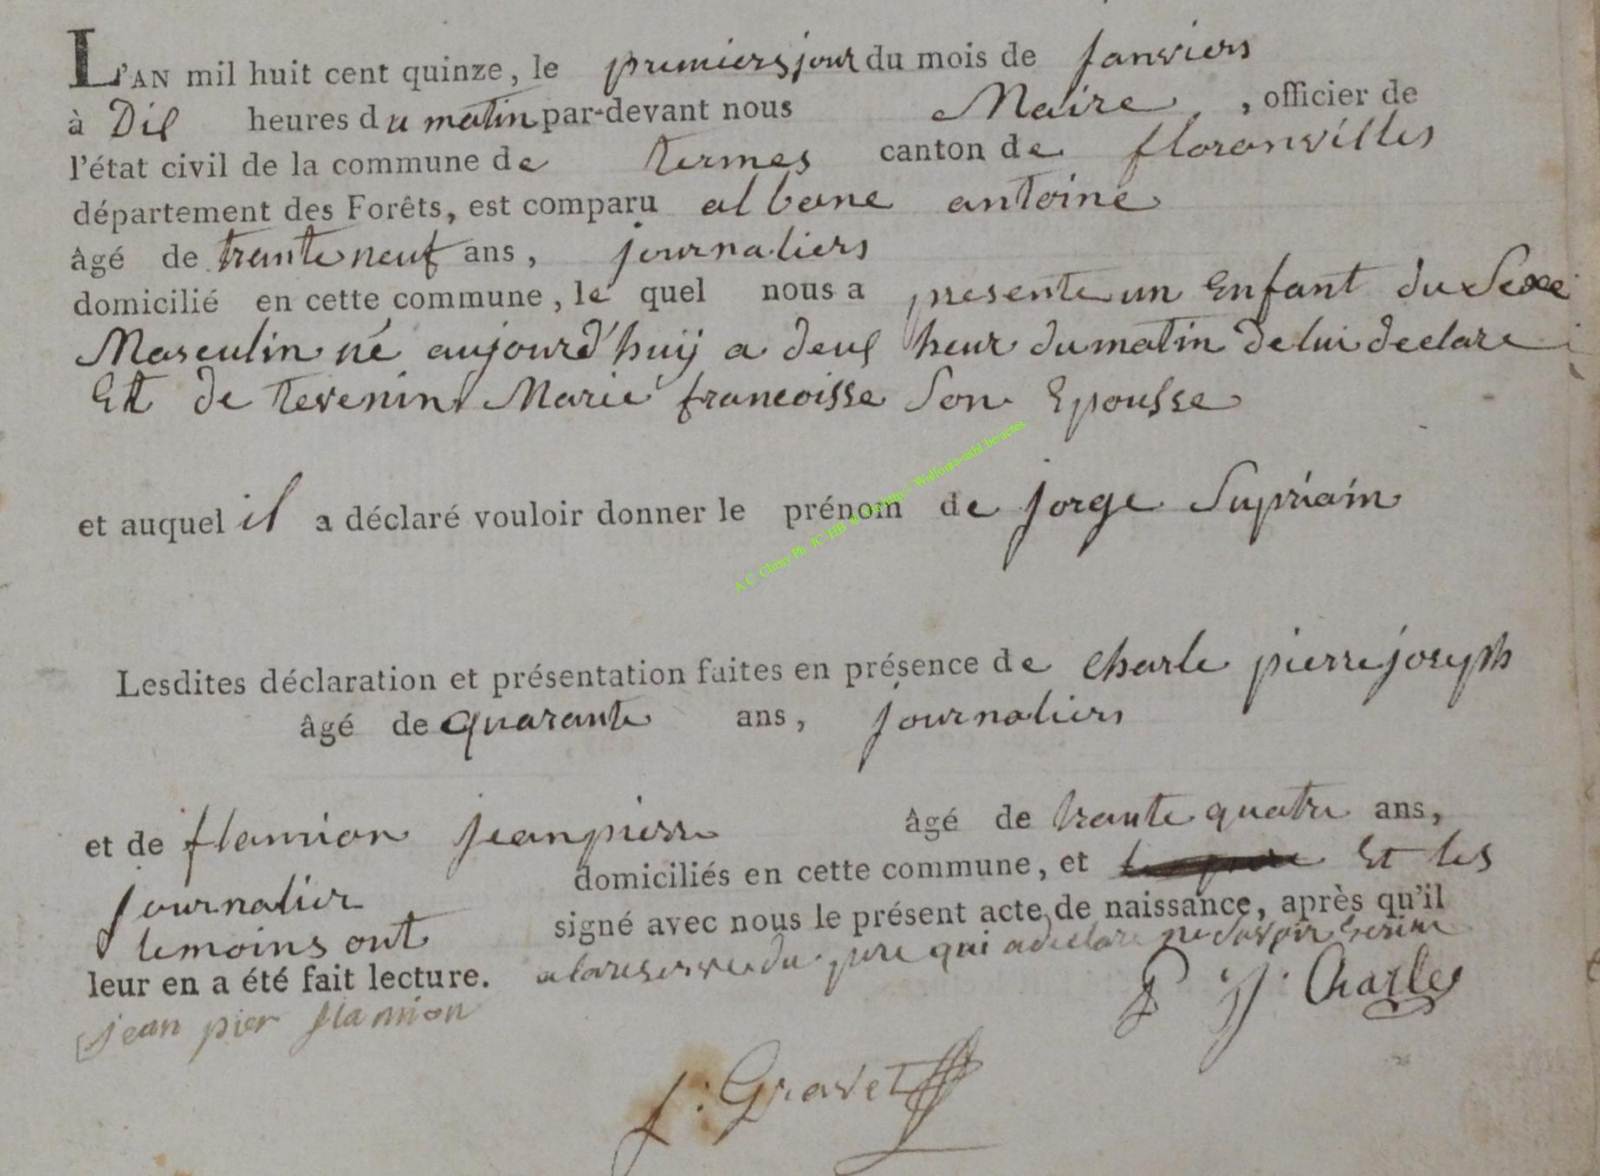 L'AN mil huit cent quinze, le premiers jour du mois de janviers
à Dix heures du matin par-devant nous Maire, officier de
l'état civil de la commune de termes canton de floranvilles
département des Forêts, est comparu albane antoine
âgé de trante neuf ans, journaliers
domicilié en cette commune, le quel nous a presente un Enfant du Sexe
Masculin né aujourd'huij a deux heur du matin de lui declare
Et de tevenin Marie francoisse Son Epousse
et auquel il a déclaré vouloir donner le prénom de jorge Supriain
Lesdites déclaration et présentation faites en présence de Charle pierre joseph
âgé de quarante ans, journaliers
et de flamion jean pierre âgé de trante quatre ans,
journalier domiciliés en cette commune, et Et les
temoins ont signé avec nous le présent acte de naissance, après qu'il
leur en a été fait lecture. a la reserve du pere qui a declare ne Savoir Ecrire
jean pier flamion P J. Charles
J: Gravet